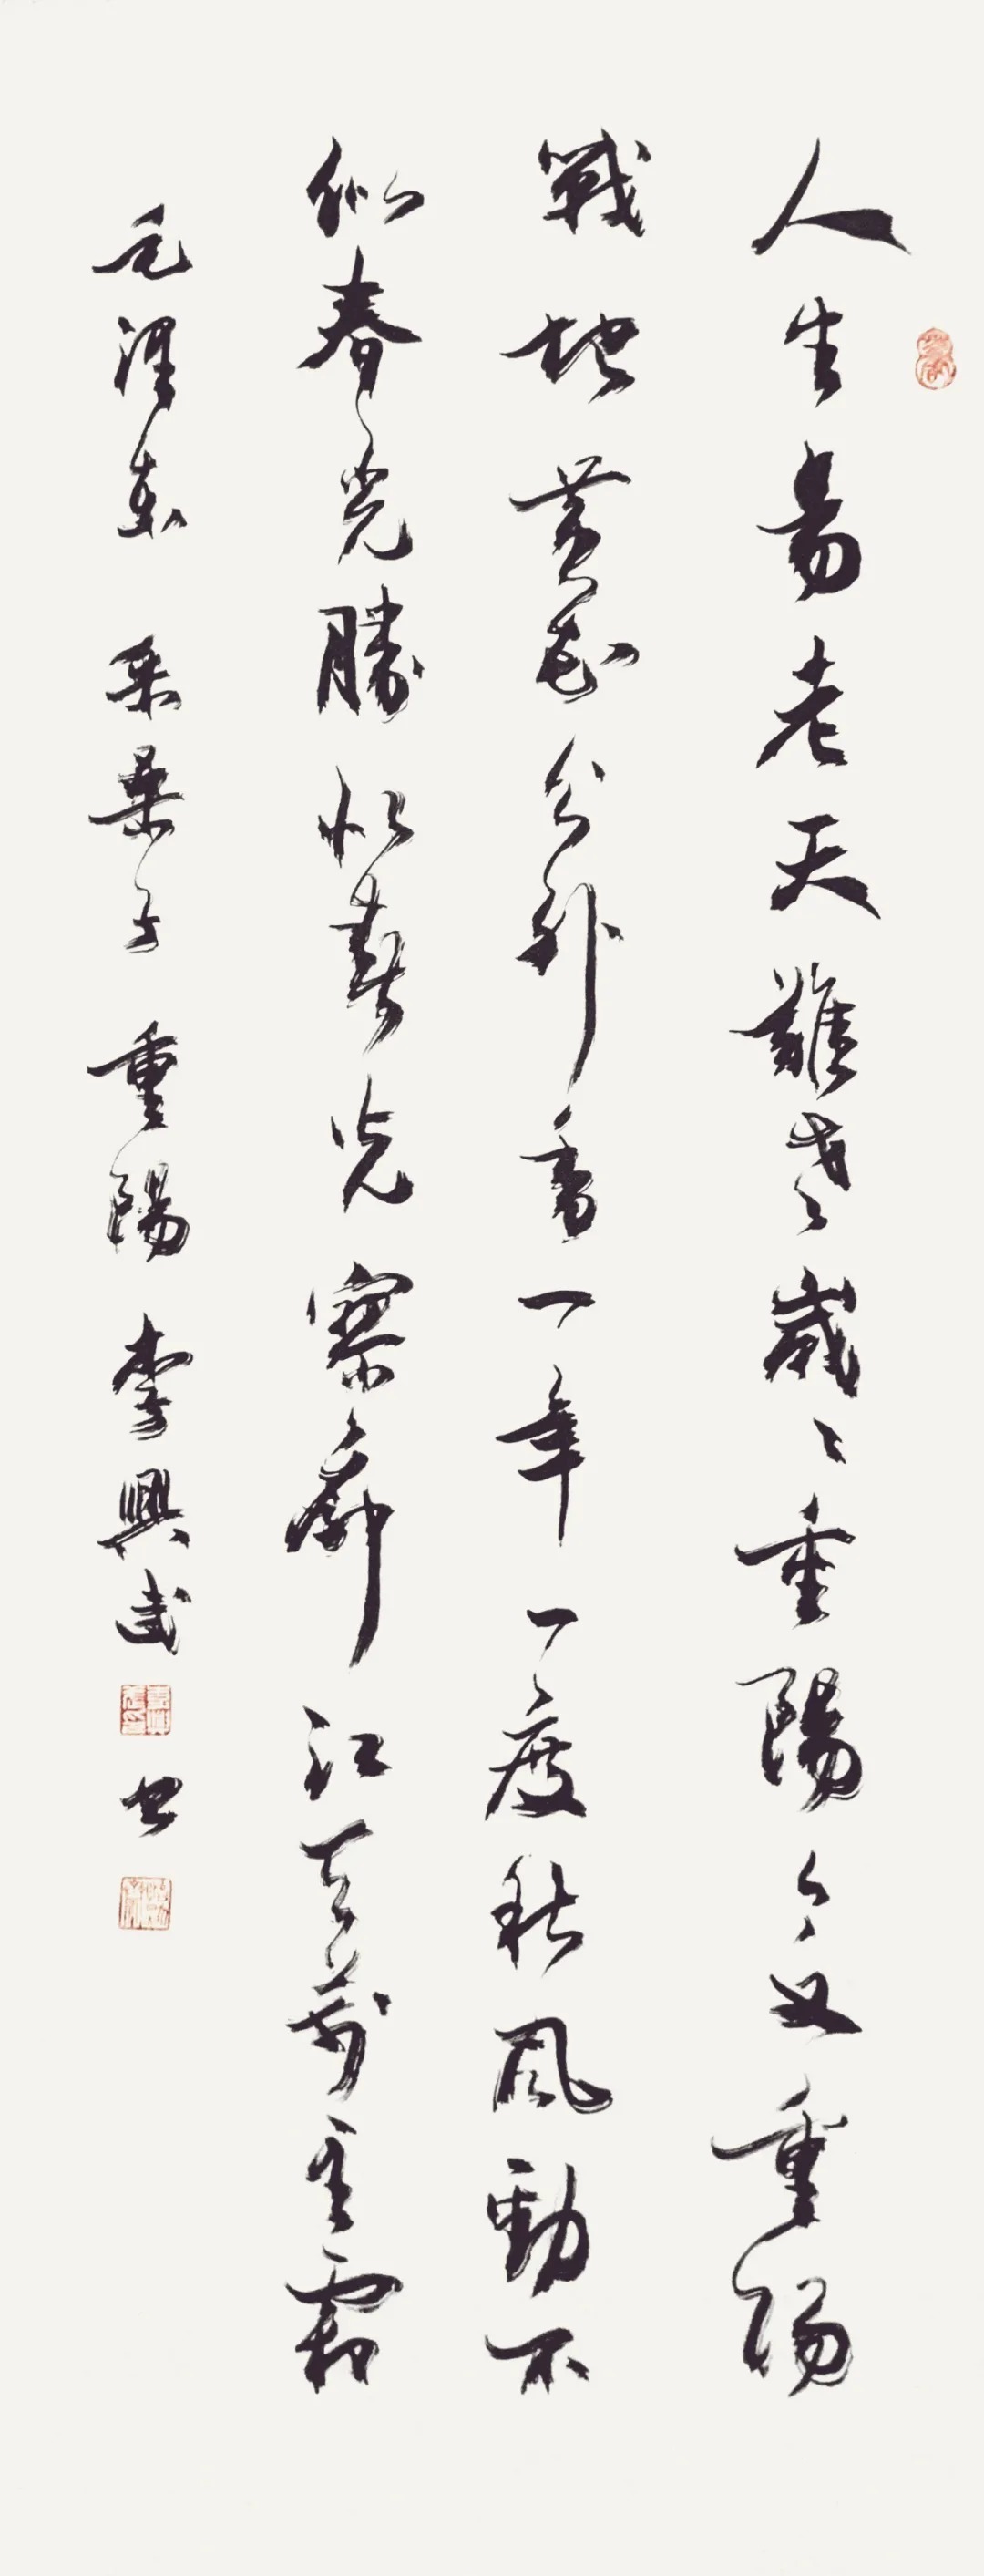 人生易老天難老歲〻重陽今又重陽
戰地黃花分外香一年一度秋風動不
似春光勝似春光寥廓江天萬里霜
毛澤東 采桑子 重陽 李興武 書